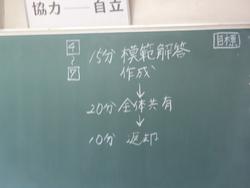 協力――自立
目標
4
~
7
15分 模範解答
作成
↓
20分 全体共有
↓
10分 返却